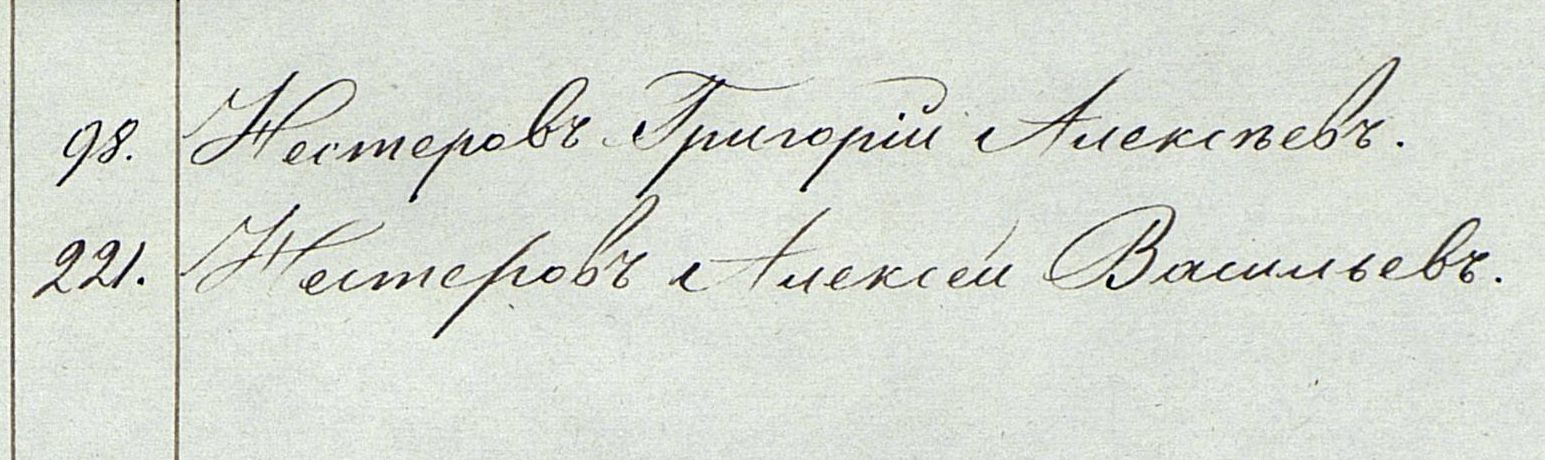 98. Нестеровъ Григорій Алексѣевъ.
221. Нестеровъ Алексѣй Васильевъ.